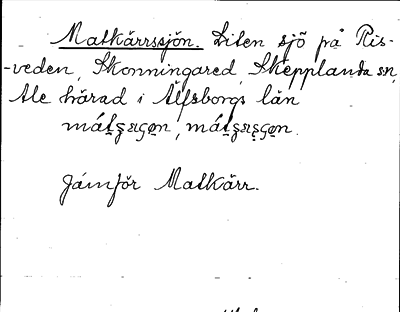 Matkärrssjön. Liten sjö på Ris-
-veden, Skonningared, Skepplanda sn,
Ale härad i Älfsborgs län
Jämför Matkärr.